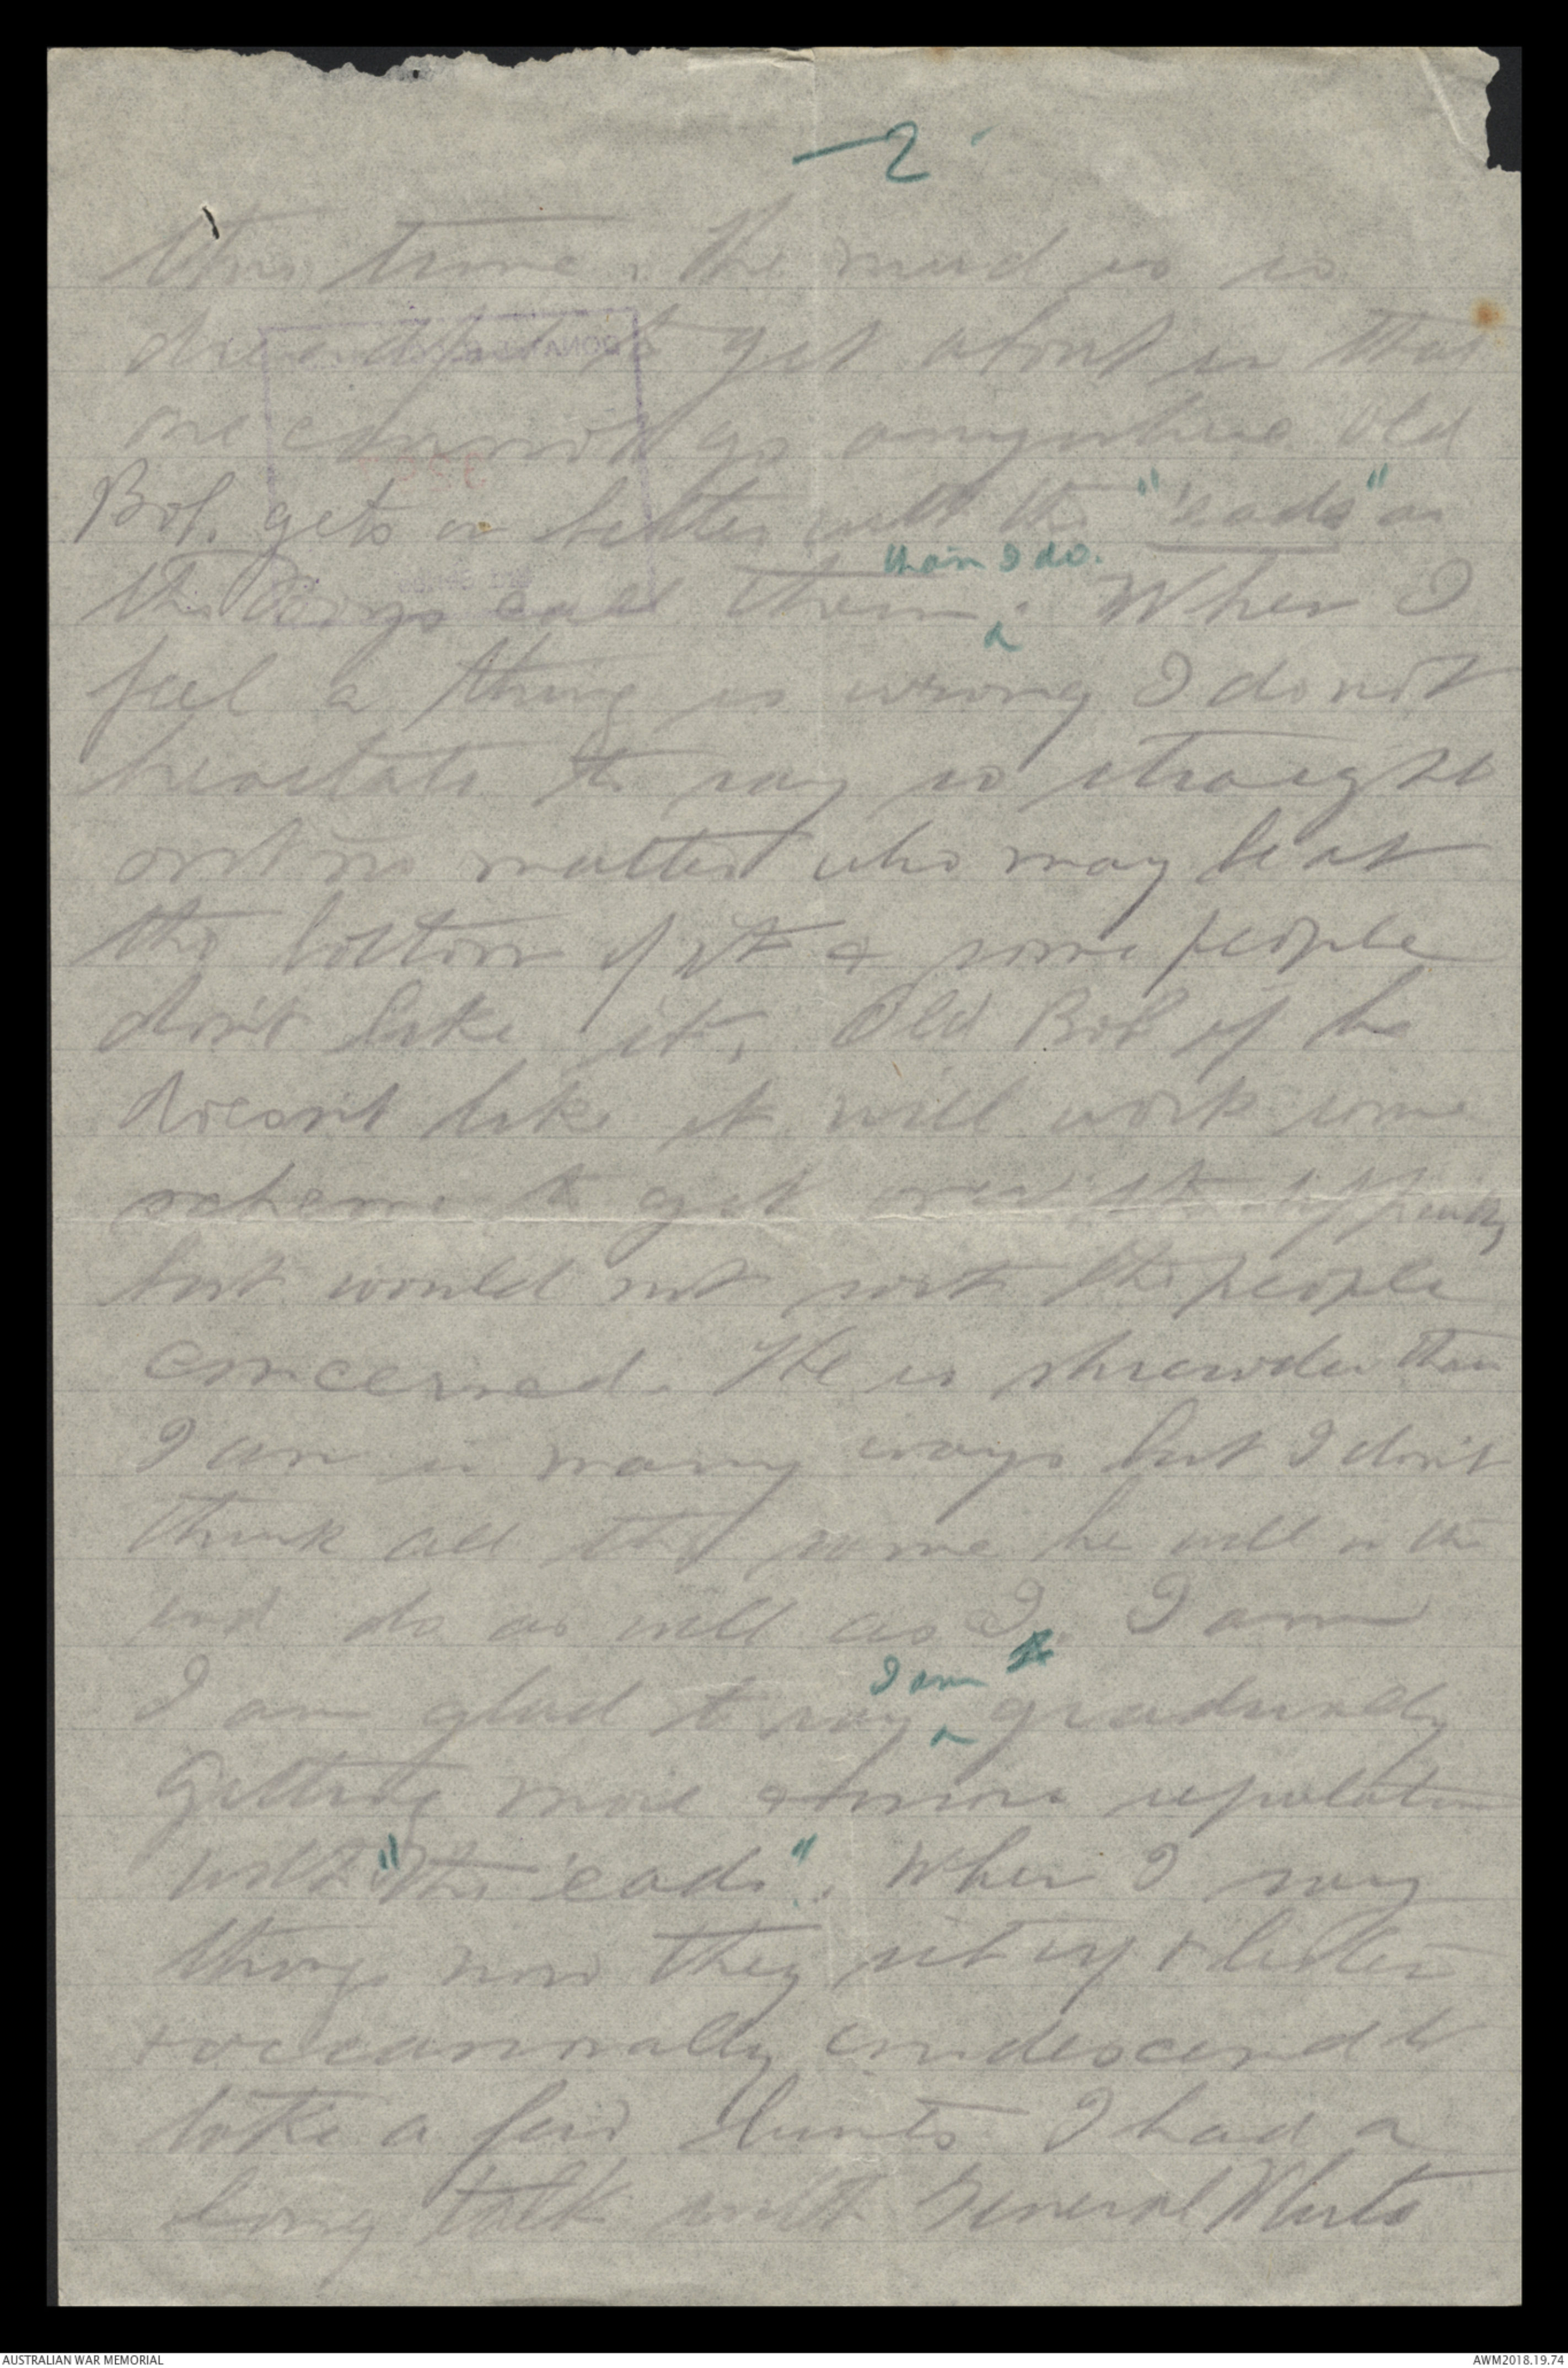 — 2
this time. The mud is so
dreadful to get about in that
one cannot go anywhere. Old
Bob. gets on better with the "'eads" as
than I do.
the Boys call them ^. When I
feel a thing is wrong I do not
hesitate to say so straight
out no matter who may be at
the bottom of it & some people
don't like it. Old Bob if he
doesn't like it will work some
scheme to get over the difficulty
but would not the people
concerned. He is shrewder than
I am in many ways but I don't
think all the same he will in the
end do as well as I. I am
I am
I am glad to say ^ gradually
getting more & more reputation
with "the 'eads". When I say
things now they sit up & listen
& occasionally condescend to
take a few hints. I had a
long talk with General White
AUSTRALIAN WAR MEMORIAL
AWM2018.19.74